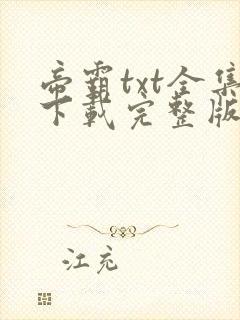 帝霸txt全集
下载完整版
江充